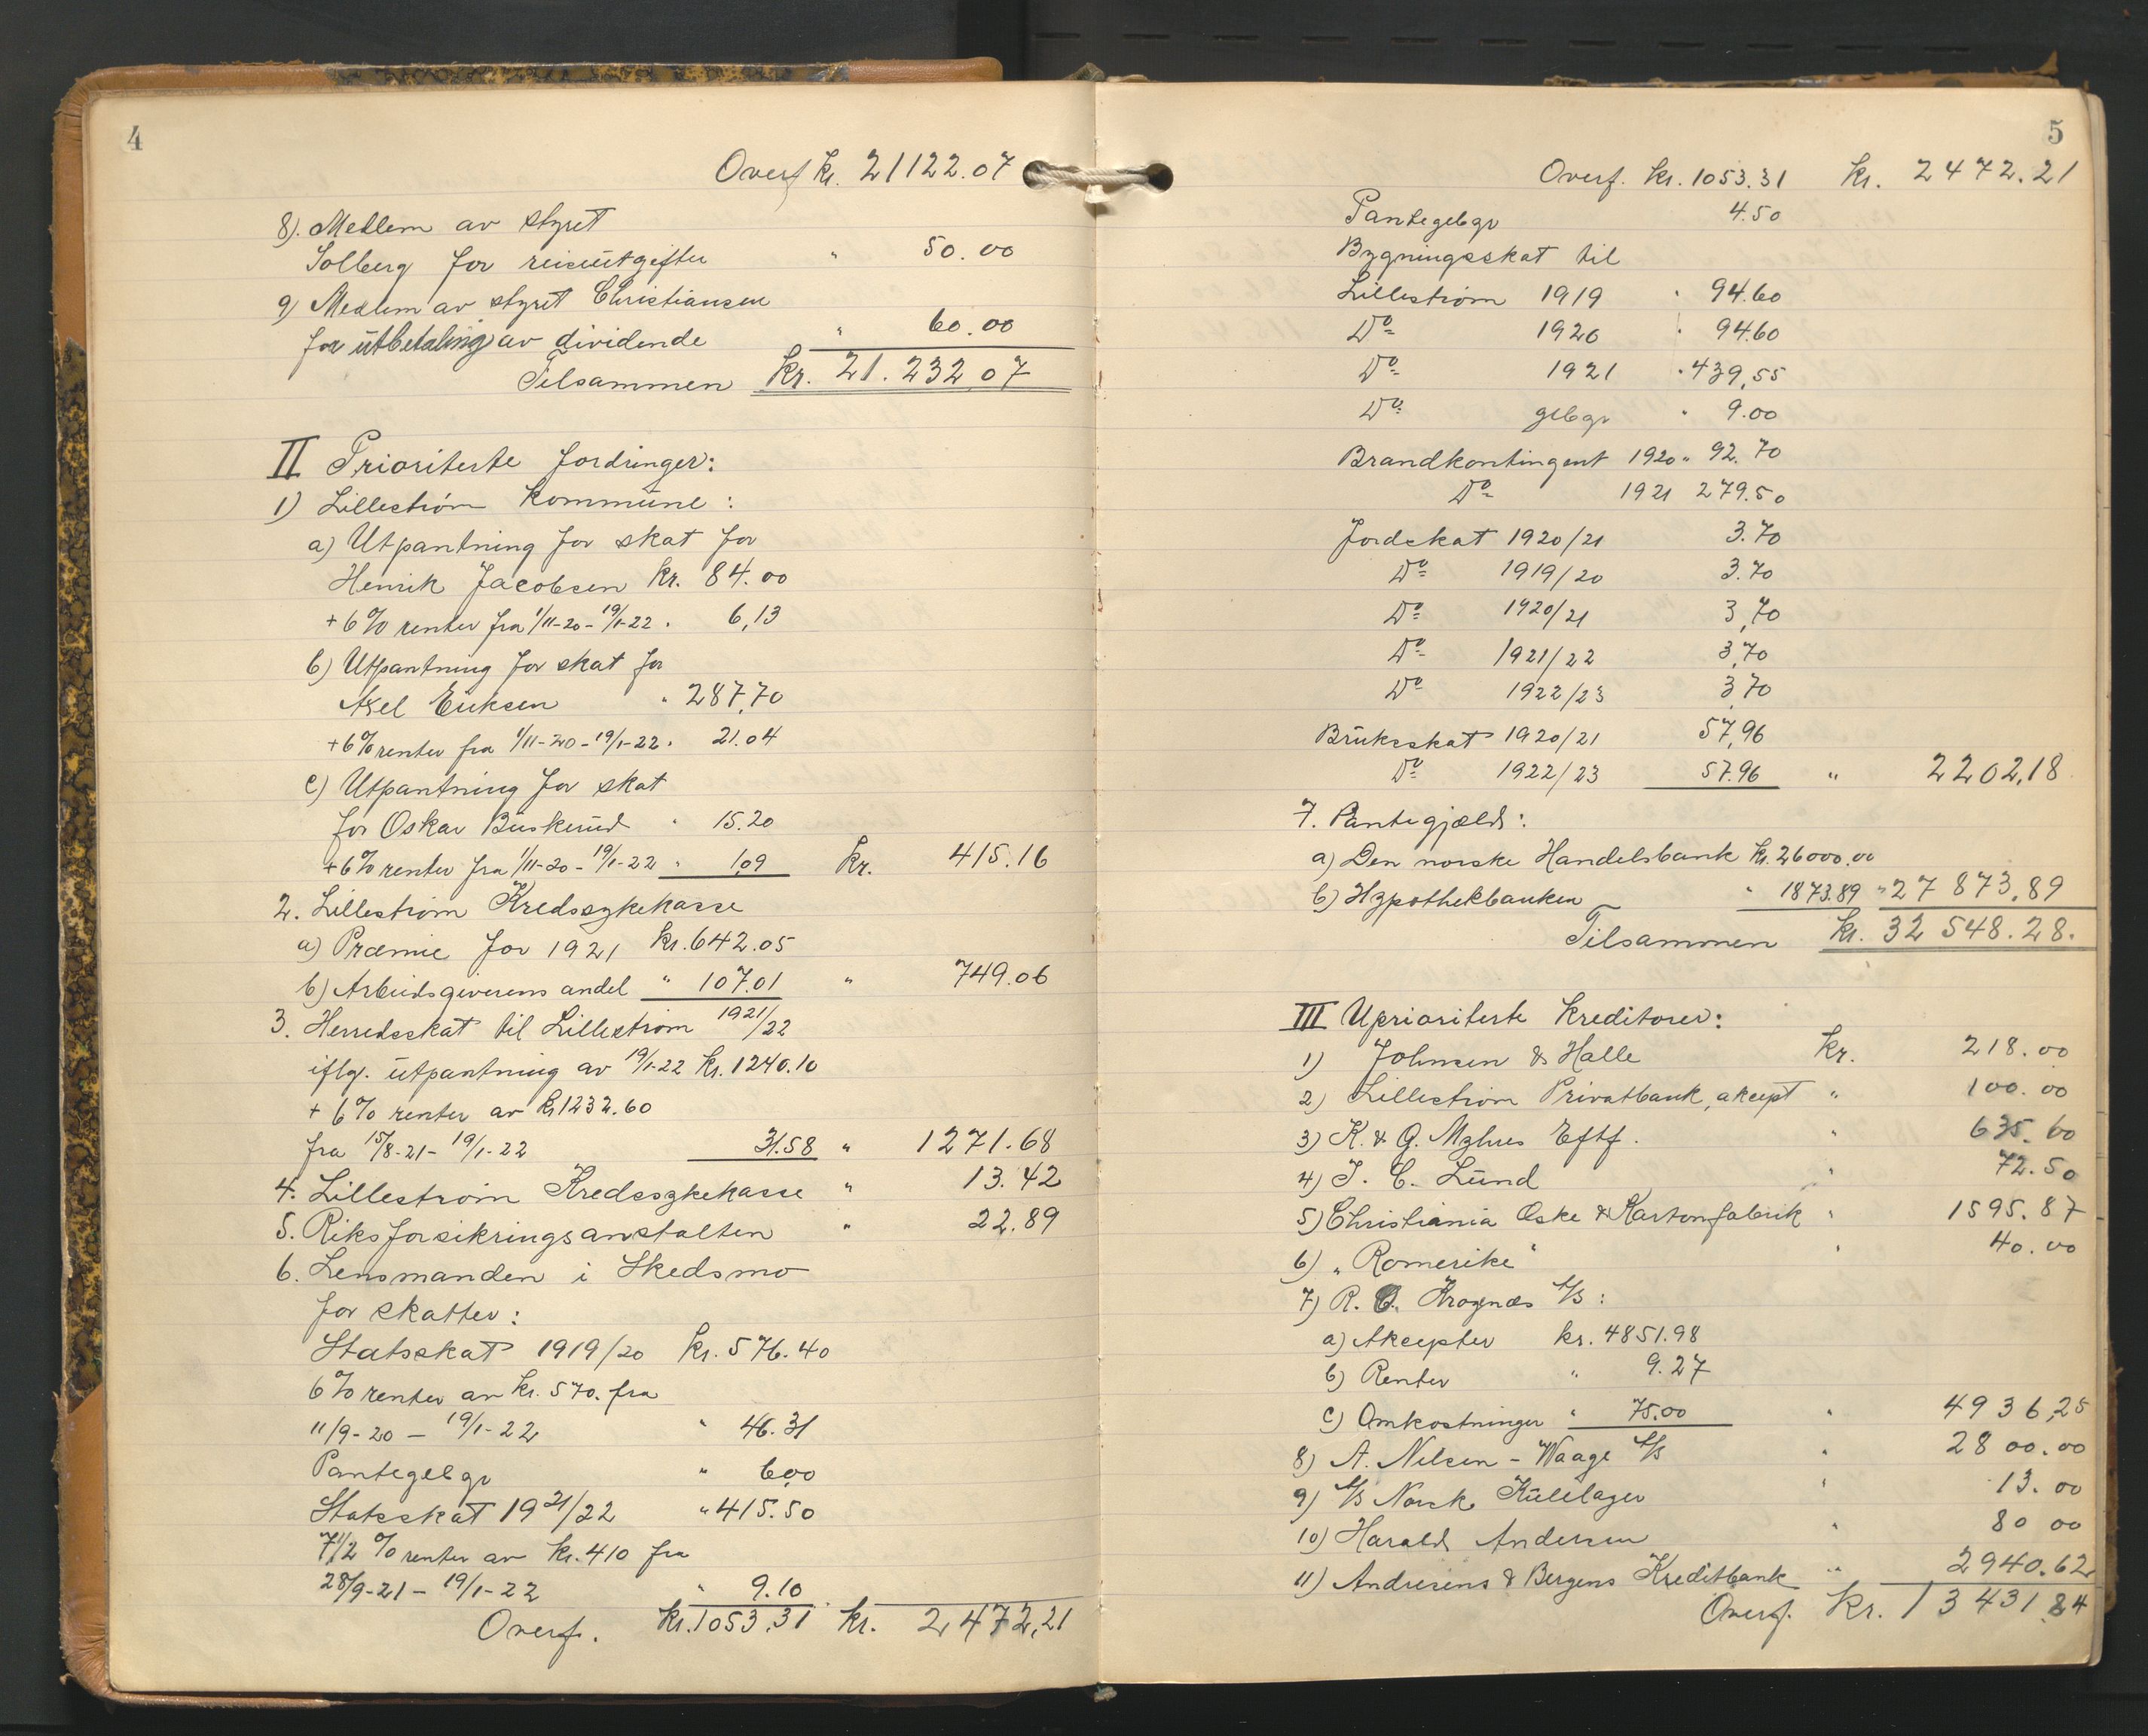 4
Overf kr. 21122.07
8). Medlem av styret
Solberg for reiseutgifter " 50.00
9) Medlem av styret Christiansen
for utbetaling av dividende " 60.00
Tilsammen kr. 21.232.07
II Prioriterte fordringer:
1) Lillestrøm kommune:
a) Utpantning for skat for
Henrik Jacobsen kr. 84.00
+ 6% renter fra 1/11-20 - 19/1-22 . 6,13
b) Utpantning for skat for
Axel Eriksen " 287,70
+ 6% renter fra 1/11-20 - 19/1-22 . 21.04
c) Utpantning for skat
for Oskar Buskerud " 15.20
+ 6% renter fra 1/11-20 - 19/1-22 " 1,09 kr. 415.16
2. Lillestrøm Kredssykekasse
a) Præmie for 1921 kr. 642.05
b) Arbeidsgiverens andel " 107.01 " 749.06
3. Herredsskat til Lillestrøm 1921/22
iflg. utpantning av 19/1-22 kr. 1240.10
+ 6% renter av kr 1232.60
fra 15/8-21 - 19/1-22 31.58 " 1271.68
4. Lillestrøm Kredssykekasse " 13.42
5. Riksforsikringsanstalten " 22.89
6. Lensmanden i Skedsmo
for skatter:
Statsskat 1919/20 kr. 576.40
6% renter av kr. 570. fra
11/9-20 - 19/1-22 " 46.31
Pantegebyr " 6,00
Statsskat 1921/22 " 415.50
7 1/2 % renter av kr. 410 fra
28/9-21 - 19/1-22 " 9.10
Overf. kr. 1053,31 kr. 2472,21
5
Overf. kr. 1053.31 kr. 2472.21
Pantegebyr 4.50
Bygningsskat til
Lillestrøm 1919 " 94.60
Do 1920 " 94.60
Do 1921 " 439,55
Do gebyr " 9.00
Brandkontingent 1920 " 92.70
Do 1921 279.50
Jordskat 1920/21 3.70
Do 1919/20 3.70
Do 1920/21 3,70
Do 1921/22 3,70
Do 1922/23 3,70
Bruksskat 1920/21 57,96
Do 1922/23 57.96 " 2202,18
7. Pantegjæld:
a) Den norske Handelsbank kr. 26000.00
b) Hypothekbanken " 1873.89 " 27873,89
Tilsammen kr. 32548.28.
III Uprioriterte kreditorer:
1) Johnsen & Halle kr. 218.00
2) Lillestrøm Privatbank, aksept " 100.00
3) K. & G. Myhres Eftf. " 635.60
4) J. C. Lund " 72.50
5) Christiania Æske & Kartonfabrik " 1595.87
6) "Romerike" " 40.00
7) R. O. Krognæs A/S:
a) Aksepter kr. 4851.98
b) Renter " 9.27
c) Omkostninger " 75.00 " 4936,25
8) A. Nilsen - Waage A/S " 2800.00
9) A/S Norsk Kulelager " 13.00
10) Harald Andersen " 80 00
11) Andresens & Bergens Kreditbank " 2940.62
Overf. kr. 13431,84